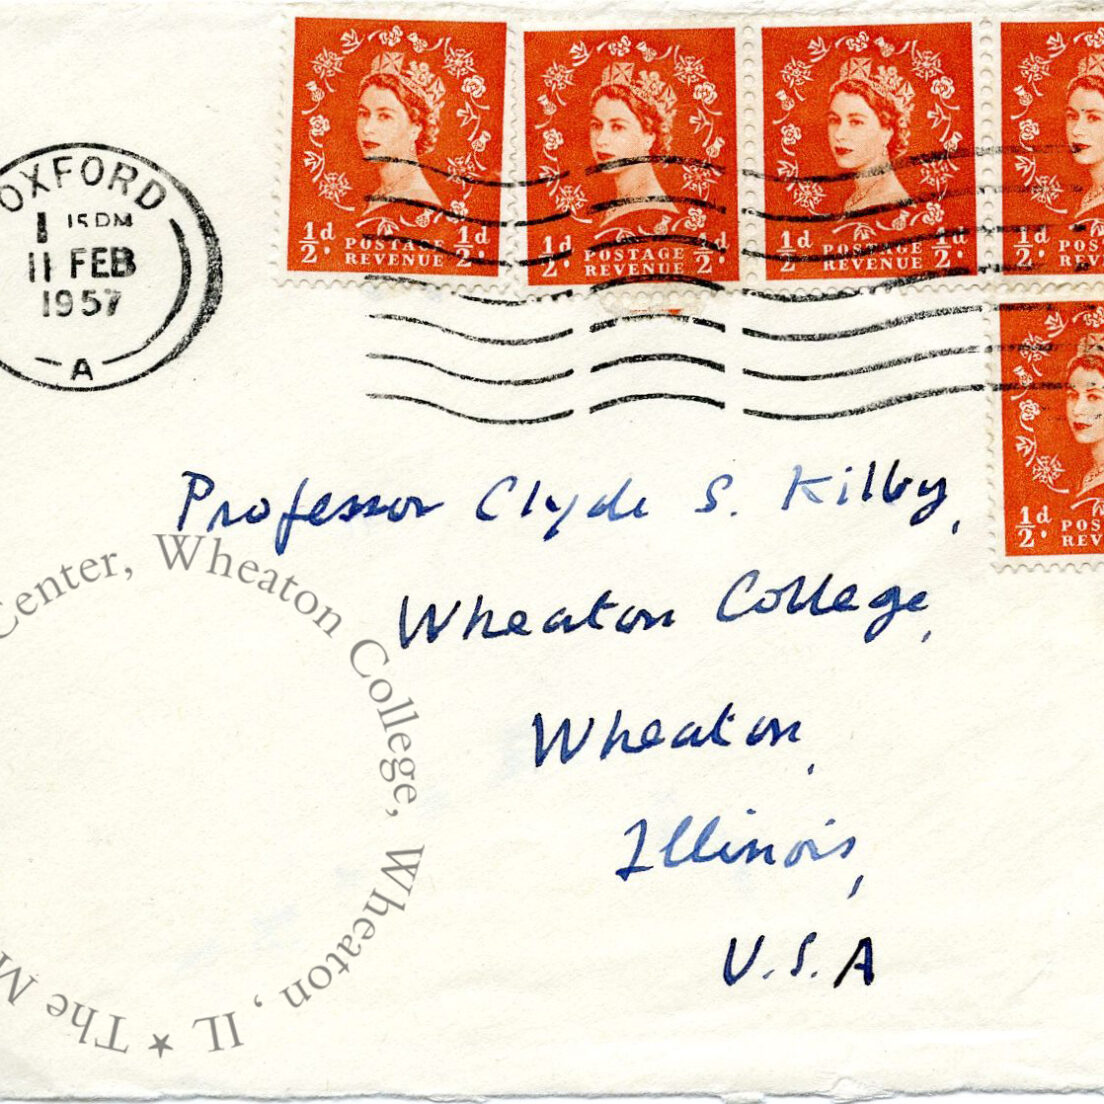 OXFORD
1 15 PM
11 FEB
1957
A
½d. POSTAGE REVENUE ½d.
½d. POSTAGE REVENUE ½d.
½d. POSTAGE REVENUE ½d.
½d. POS
REV
½d. POS
REV
Professor Clyde S. Kilby,
Wheaton College,
Wheaton,
Illinois,
U.S.A
Center, Wheaton College, Wheaton, IL ★ The M